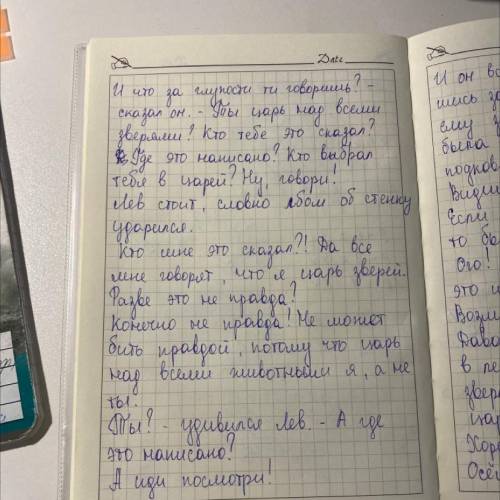 Date
И что за глупости ти говоришь? -
сказал он. - Ты царь над всеми
зверями? Кто тебе это сказал?
Где это написано? Кто выбрал
тебя в царей? Ну, говори!
Лев стоит, словно лбом об стенку
ударился.
Кто мне это сказал?! Да все
мне говорят, что я царь зверей.
Разве это не правда?
Конечно не правда! Не может
бить правдой, потому что царь
над всеми животными я, а не
ты.
Ты? - удивился Лев. - А где
это написано?
А иди посмотри!
И он вс
шись за
ему
была
подков
Види
Если
то бы
Ого!
это и
Возм
Даво
в ле
звер
цар
Хор
Осё